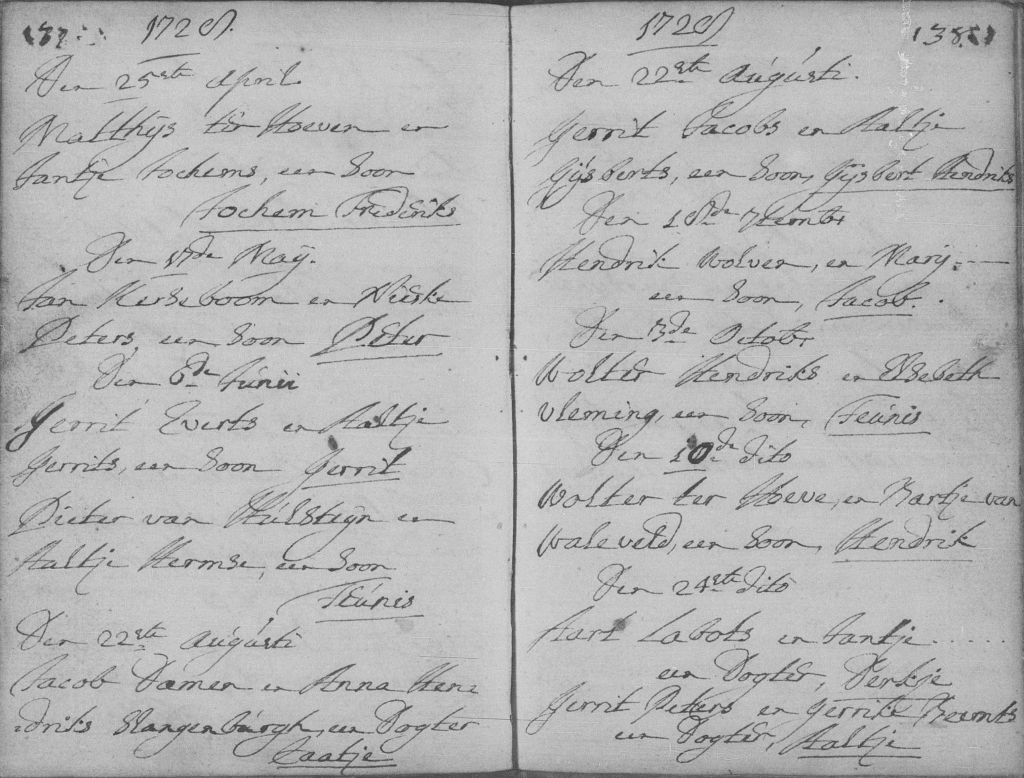 137
1728.
Den 25ste April
Matthijs ter Hoeven en
Jantje Jochems, een Soon
Jochem Frederiks
Den 17de Maij.
Jan Kerseboom en Nieske
Peters, een Soon Peter
Den 6de Junii
Gerrit Everts en Aaltje
Gerrits, een Soon Gerrit
Pieter van Hulsteijn en
Aaltje Hermse, een Soon
Teunis
Den 22ste Augusti
Jacob Damen en Anna Hen-
driks Slangenburgh, een Dogter
Taatje
1728
138
Den 22ste Augusti.
Gerrit Jacobs en Aaltje
Gijsberts, een Soon, Gijsbert Hendriks
Den 18de 7tembr
Hendrik Wolver, en Marij
een Soon, Jacob.
Den 3de Octobr
Wolter Hendriks en Elsebeth
Vleming, een Soon, Teunis
Den 10de dito
Wolter ter Hoeve, en Bartje van
Waleveld, een Soon, Hendrik
Den 24ste dito
Hart Labots en Jantje ......
een Dogter, Derkje
Gerrit Peters en Gerritie Reemts
een Dogter, Aaltje